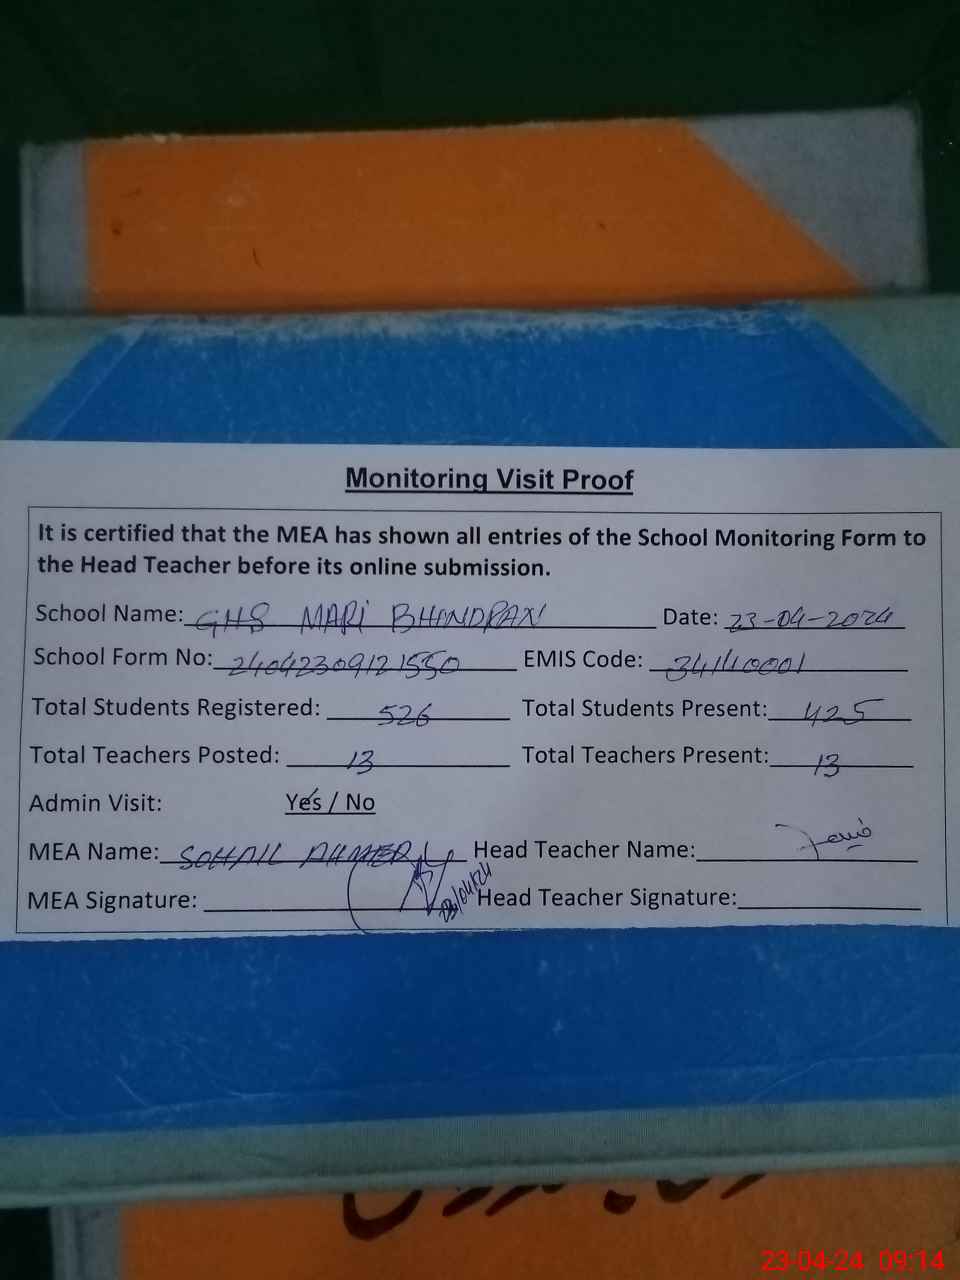 Monitoring Visit Proof
It is certified that the MEA has shown all entries of the School Monitoring Form to
the Head Teacher before its online submission.
School Name: GHS MARI BHINDRAN Date: 23-04-2024
School Form No: 24042309121550 EMIS Code: 34110001
Total Students Registered: 526 Total Students Present: 425
Total Teachers Posted: 13 Total Teachers Present: 13
Admin Visit: Yes / No
MEA Name: SOHAIL AHMER Head Teacher Name:
MEA Signature: 23/04/24 Head Teacher Signature:
23-04-24 09:14